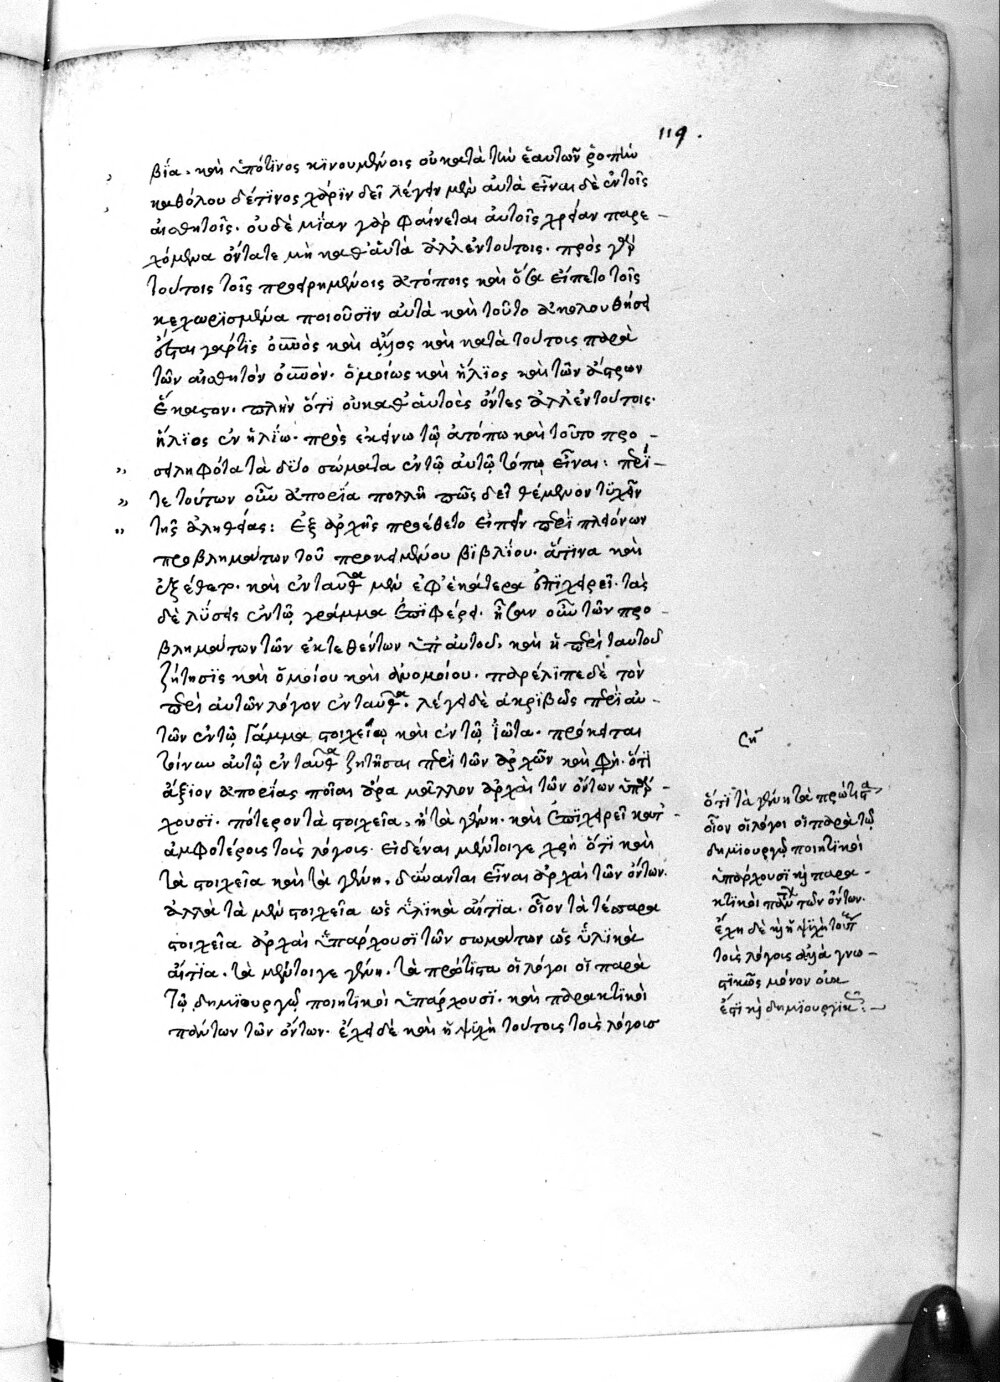 119.
βία. καὶ ὑπότινος κινουμένοις οὐ κατὰ τὴν ἑαυτῶν ῥοπὴν
καθόλου δὲ τίνος χάριν δεῖ λέγειν μὲν αὐτὰ εἶναι δὲ ἐν τοῖς
αἰσθητοῖς. οὐδὲ μΐαν γὰρ φαίνεται αὐτοῖς χρείαν παρε-
χόμενα ὄντά τε μὴ καθ' αὑτὰ ἀλλ' ἐν τούτοις. πρὸς γὰρ
τούτοις τοῖς προειρημένοις ἀτόποις καὶ ὅσα εἵπετο τοῖς
κεχωρισμένα ποιοῦσϊν αὐτὰ καὶ τοῦτο ἀκολουθήσει
ἔσται γάρ τις οὐνὸς καὶ ἄλλος καὶ κατὰ τούτοις παρὰ
τῶν αἰσθητὸν οὐνὸν. ὁμοίως καὶ ἥλϊος καὶ τῶν ἄστρων
ἕκαστον. πλὴν ὅτϊ οὐ καθ' ἁυτοὺς ὄντες ἀλλ' ἐν τούτοις.
ἥλϊος ἐν ἡλίῳ. πρὸς ἐκείνω τῷ ἀτόπω καὶ τοῦτο προ-
σειληφότα τὰ δύο σώματα ἐν τῷ αὐτῷ τόπῳ εἶναι: περί-
τε τούτων οὖν ἀπορΐα πολλὴ πῶς δεῖ θέμενον τυχεῖν
τῆς ἀληθείας: Ἐξ ἀρχῆς προέθετο εἰπεῖν περὶ πλειόνων
προβλημάτων τοῦ προκειμένου βϊβλΐου. ἅτϊνα καὶ
ἐξέθετο. καὶ ἐνταῦθα μὲν ἐφ' ἑκάτερα ἐπϊχειρεῖ. τὰς
δὲ λύσεις ἐν τῷ γράμμα ἐπϊφέρει. ἦσαν οὖν τῶν προ-
βλημάτων τῶν ἐκτεθέντων ὑπ' αὐτοῦ, καὶ ἡ περὶ ταυτοῦ
ζήτησϊς καὶ ὁμοίου καὶ ἀνομοίου. παρέλιπε δὲ τὸν
περὶ αὐτῶν λόγον ἐνταῦθα. λέγει δὲ ἀκρϊβῶς περὶ αὐ-
τῶν ἐν τῷ Γάμμα στοιχείῳ καὶ ἐν τῷ Ἰῶτα. πρόκειται
τοίνυν αὐτῷ ἐνταῦθα ζητῆσαι περὶ τῶν ἀρχῶν καὶ φησὶν ὅτϊ
ἄξιον ἀπορίας ποῖαι ἄρα μᾶλλον ἀρχαὶ τῶν ὄντων ὑπάρ-
χουσι. πότερον τὰ στοιχεῖα, ἢ τὰ γένη. καὶ ἐπϊχειρεῖ κατ'
ἀμφοτέροις τοῖς λόγοις. εἰδέναι μέντοιγε χρὴ ὅτι καὶ
τὰ στοιχεῖα καὶ τὰ γένη, δύνανται εἶναι ἀρχαὶ τῶν ὄντων.
ἀλλὰ τὰ μὲν στοιχεῖα ὡς ὑλϊκὰ αἴτϊα. οἷον τὰ τέσσαρα
στοιχεῖα ἀρχαὶ ὑπάρχουσϊ τῶν σωμάτων ὡς ὑλϊκὰ
αἴτϊα. τὰ μέντοιγε γένη. τὰ πρώτϊστα οἱ λόγοι οἱ παρὰ
τῷ δημϊουργῷ ποιητϊκοὶ ὑπάρχουσϊ. καὶ παρακτϊκοὶ
πάντων τῶν ὄντων. ἔχει δὲ καὶ ἡ ψϋχὴ τούτοις τοὺς λόγοις
ση
ὅτϊ τὰ γένη τὰ πρώτιστα,
οἷον οἱ λόγοι οἱ παρὰ τῷ
δημϊουργῷ ποιητϊκοὶ
ὑπάρχουσϊ καὶ παρα-
κτϊκοὶ πάντων τῶν ὄντων.
ἔχει δὲ καὶ ἡ ψϋχὴ τούτους
τοὺς λόγοις ἀλλὰ γνω-
στϊκῶς μόνον οὐ
ἔστϊ καὶ δημϊουργϊκῶς:-